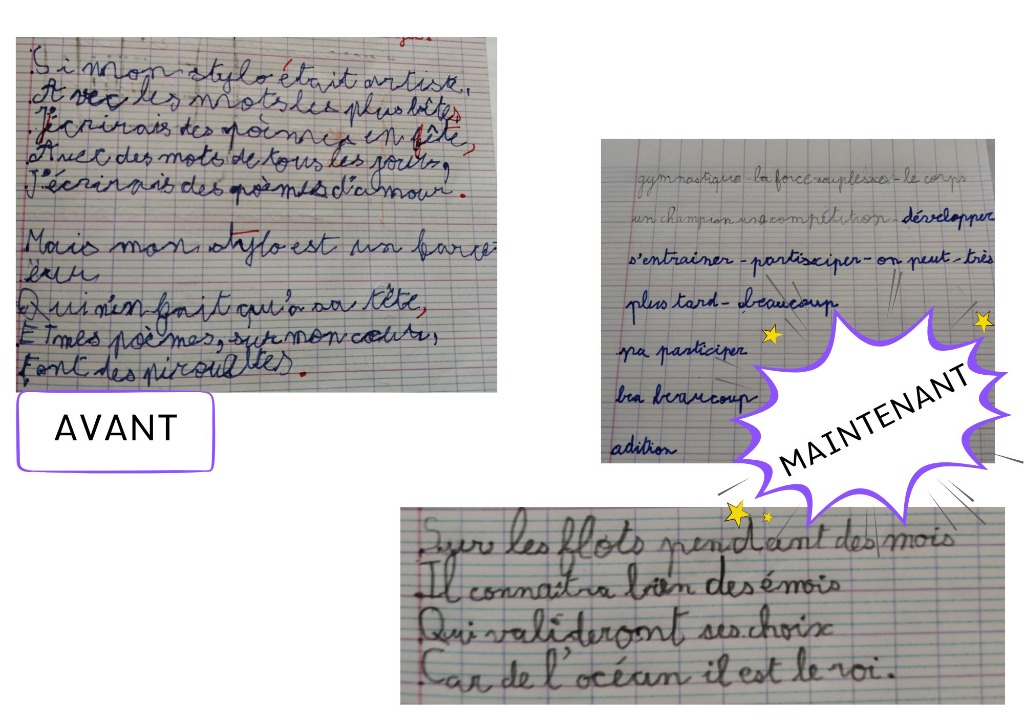 Si mon stylo était artiste,
Avec les mots les plus bêtes
J'écrirais des poèmes en fête,
Avec des mots de tous les jours,
J'écrirais des poèmes d'amour.
Mais mon stylo est un farce-
eur
Qui n'en fait qu'à sa tête,
Et mes poèmes, sur mon cœur,
Font des pirouettes.
AVANT
gymnastique - la force souplesse - le corps
un champion une compétition - développer
s'entrainer - partisciper - on peut - très
plus tard - beaucoup
pa participer
bea beaucoup
adition
MAINTENANT
Sur les flots pendant des mois
Il connaîtra bien des émois
Qui valideront ses choix
Car de l'océan il est le roi.